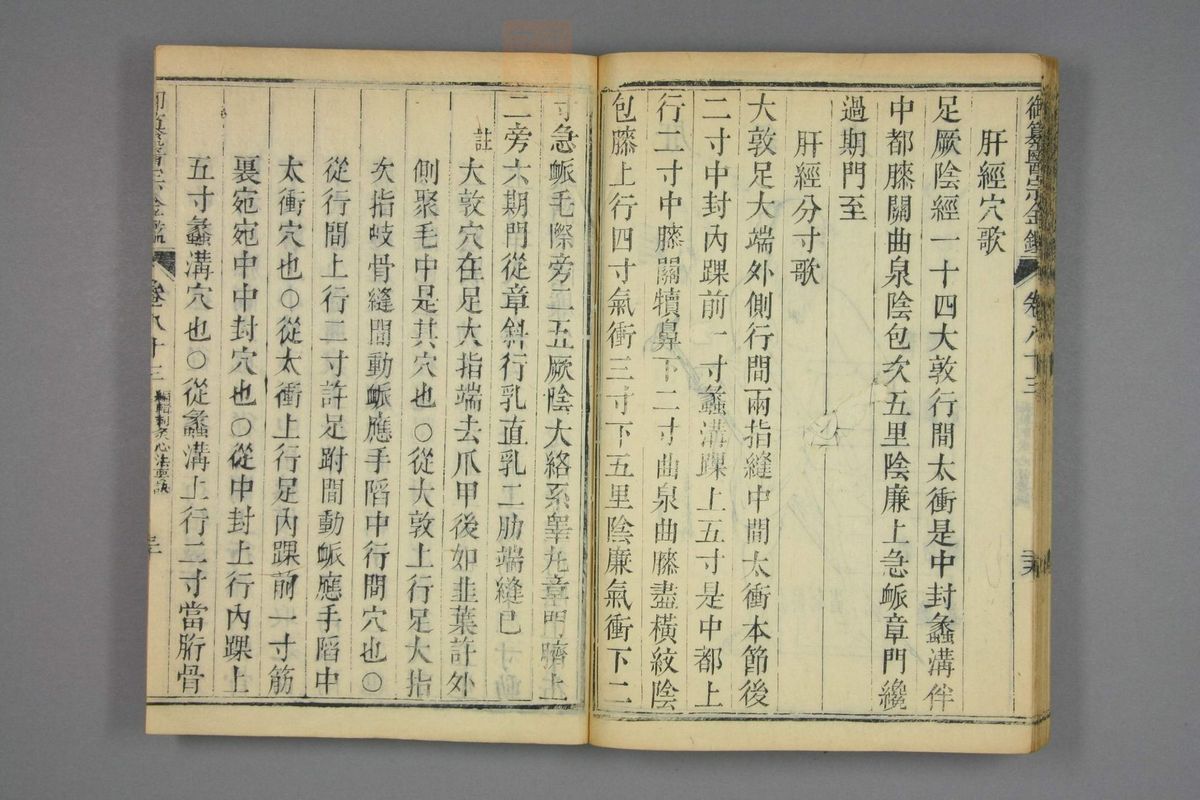 御纂醫宗金鑑 卷八十三
肝經穴歌
足厥陰經一十四大敦行間太衝是中封蠡溝伴
中都膝關曲泉陰包次五里陰廉上急脈章門纔
過期門至
肝經分寸歌
大敦足大端外側行間兩指縫中間太衝本節後
二寸中封內踝前一寸蠡溝踝上五寸是中都上
行二寸中膝關犢鼻下二寸曲泉曲膝盡橫紋陰
包膝上行四寸氣衝三寸下五里陰廉氣衝下二
寸急脈毛際旁二五厥陰大絡系睾丸章門臍上
二旁六期門從章斜行乳直乳二肋端縫已
註
大敦穴在足大指端去爪甲後如韭葉許外
側聚毛中是其穴也○從大敦上行足大指
次指岐骨縫間動脈應手陷中行間穴也○
從行間上行二寸許足跗間動脈應手陷中
太衝穴也○從太衝上行足內踝前一寸筋
裏宛宛中中封穴也○從中封上行內踝上
五寸蠡溝穴也○從蠡溝上行二寸當胻骨
卷八十三 編輯刺灸心法要訣